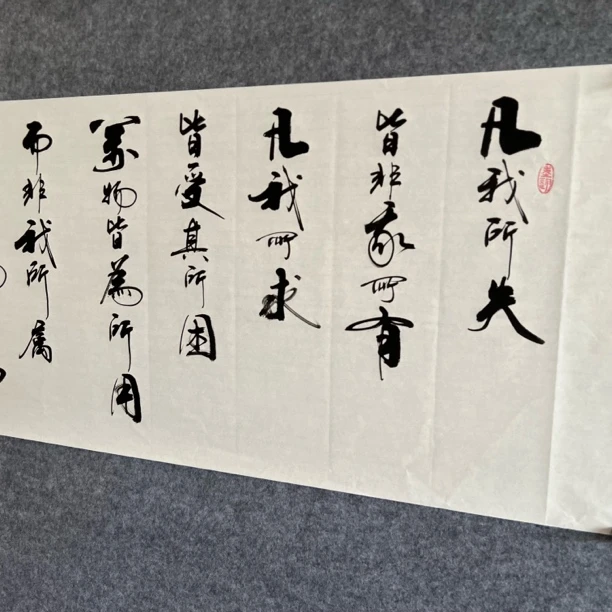 凡我所失
皆非我所有
凡我所求
皆受其所困
万物皆為所用
而非我所属